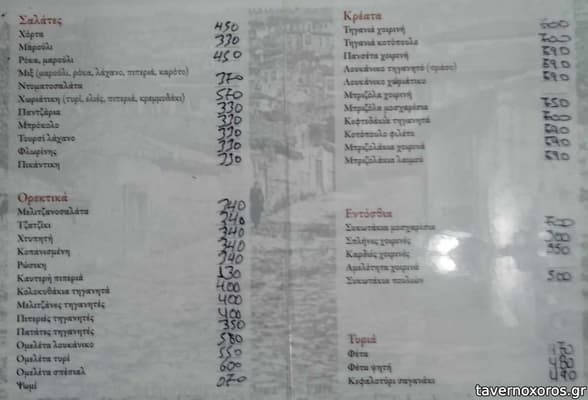 Σαλάτες
Χόρτα 450
Μαρούλι 330
Ρόκα, μαρούλι 450
Μιξ (μαρούλι, ρόκα, λάχανο, πιπεριά, καρότο)
Ντοματοσαλάτα 370
Χωριάτικη (τυρί, ελιές, πιπεριά, κρεμμυδάκι) 570
Παντζάρια 330
Μπρόκολο 330
Τουρσί λάχανο 330
Φλωρίνης 330
Πικάντικη 330
Ορεκτικά
Μελιτζανοσαλάτα 340
Τζατζίκι 340
Χτυπητή 340
Κοπανισμένη 340
Ρώσικη 340
Καυτερή πιπεριά 130
Κολοκυθάκια τηγανητά 400
Μελιτζάνες τηγανητές 400
Πιπεριές τηγανητές 400
Πατάτες τηγανητές 350
Ομελέτα λουκάνικο 580
Ομελέτα τυρί 550
Ομελέτα σπέσιαλ 600
Ψωμί 070
Κρέατα
Τηγανιά χοιρινή
Τηγανιά κοτόπουλο 700
Πανσέτα χοιρινή 590
Λουκάνικο τηγανητό (πράσο) 590
Λουκάνικο χωριάτικο 590
Μπριζόλα χοιρινή
Μπριζόλα μοσχαρίσια 750
Κεφτεδάκια τηγανητά 700
Κοτόπουλο φιλέτο
Μπριζολάκια χοιρινά
Μπριζολάκια λαιμού 590
Εντόσθια
Συκωτάκια μοσχαρίσια
Σπλήνες χοιρινές
Καρδιές χοιρινές 350
Αμελέτητα χοιρινά
Συκωτάκια πουλιών 500
Τυριά
Φέτα 370
Φέτα ψητή 480
Κεφαλοτύρι σαγανάκι 490
tavernoxoros.gr